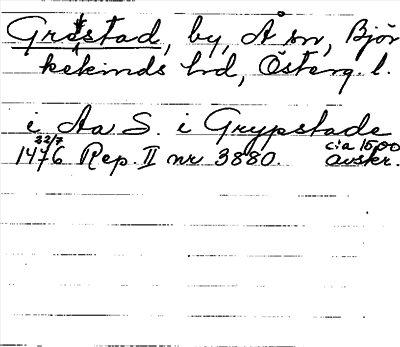 Gråstad, by, Å sn, Björ
kekinds hd, Österg. l.
i Aa S. i Grypstade
22/7 1476 Rep. II nr 3880. c:a 1500 avskr.